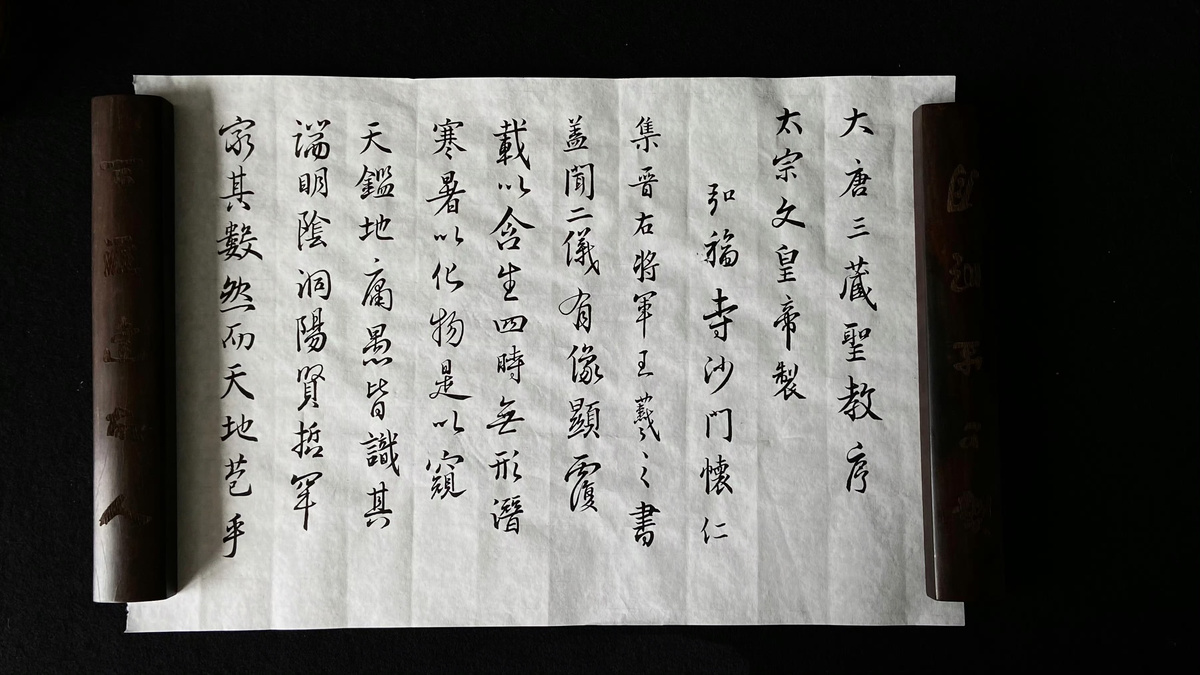 大唐三藏聖教序
太宗文皇帝製
弘福寺沙門懷仁
集晉右將軍王羲之書
蓋聞二儀有像顯覆
載以含生四時無形潛
寒暑以化物是以窺
天鑑地庸愚皆識其
端明陰洞陽賢哲罕
窮其數然而天地苞乎